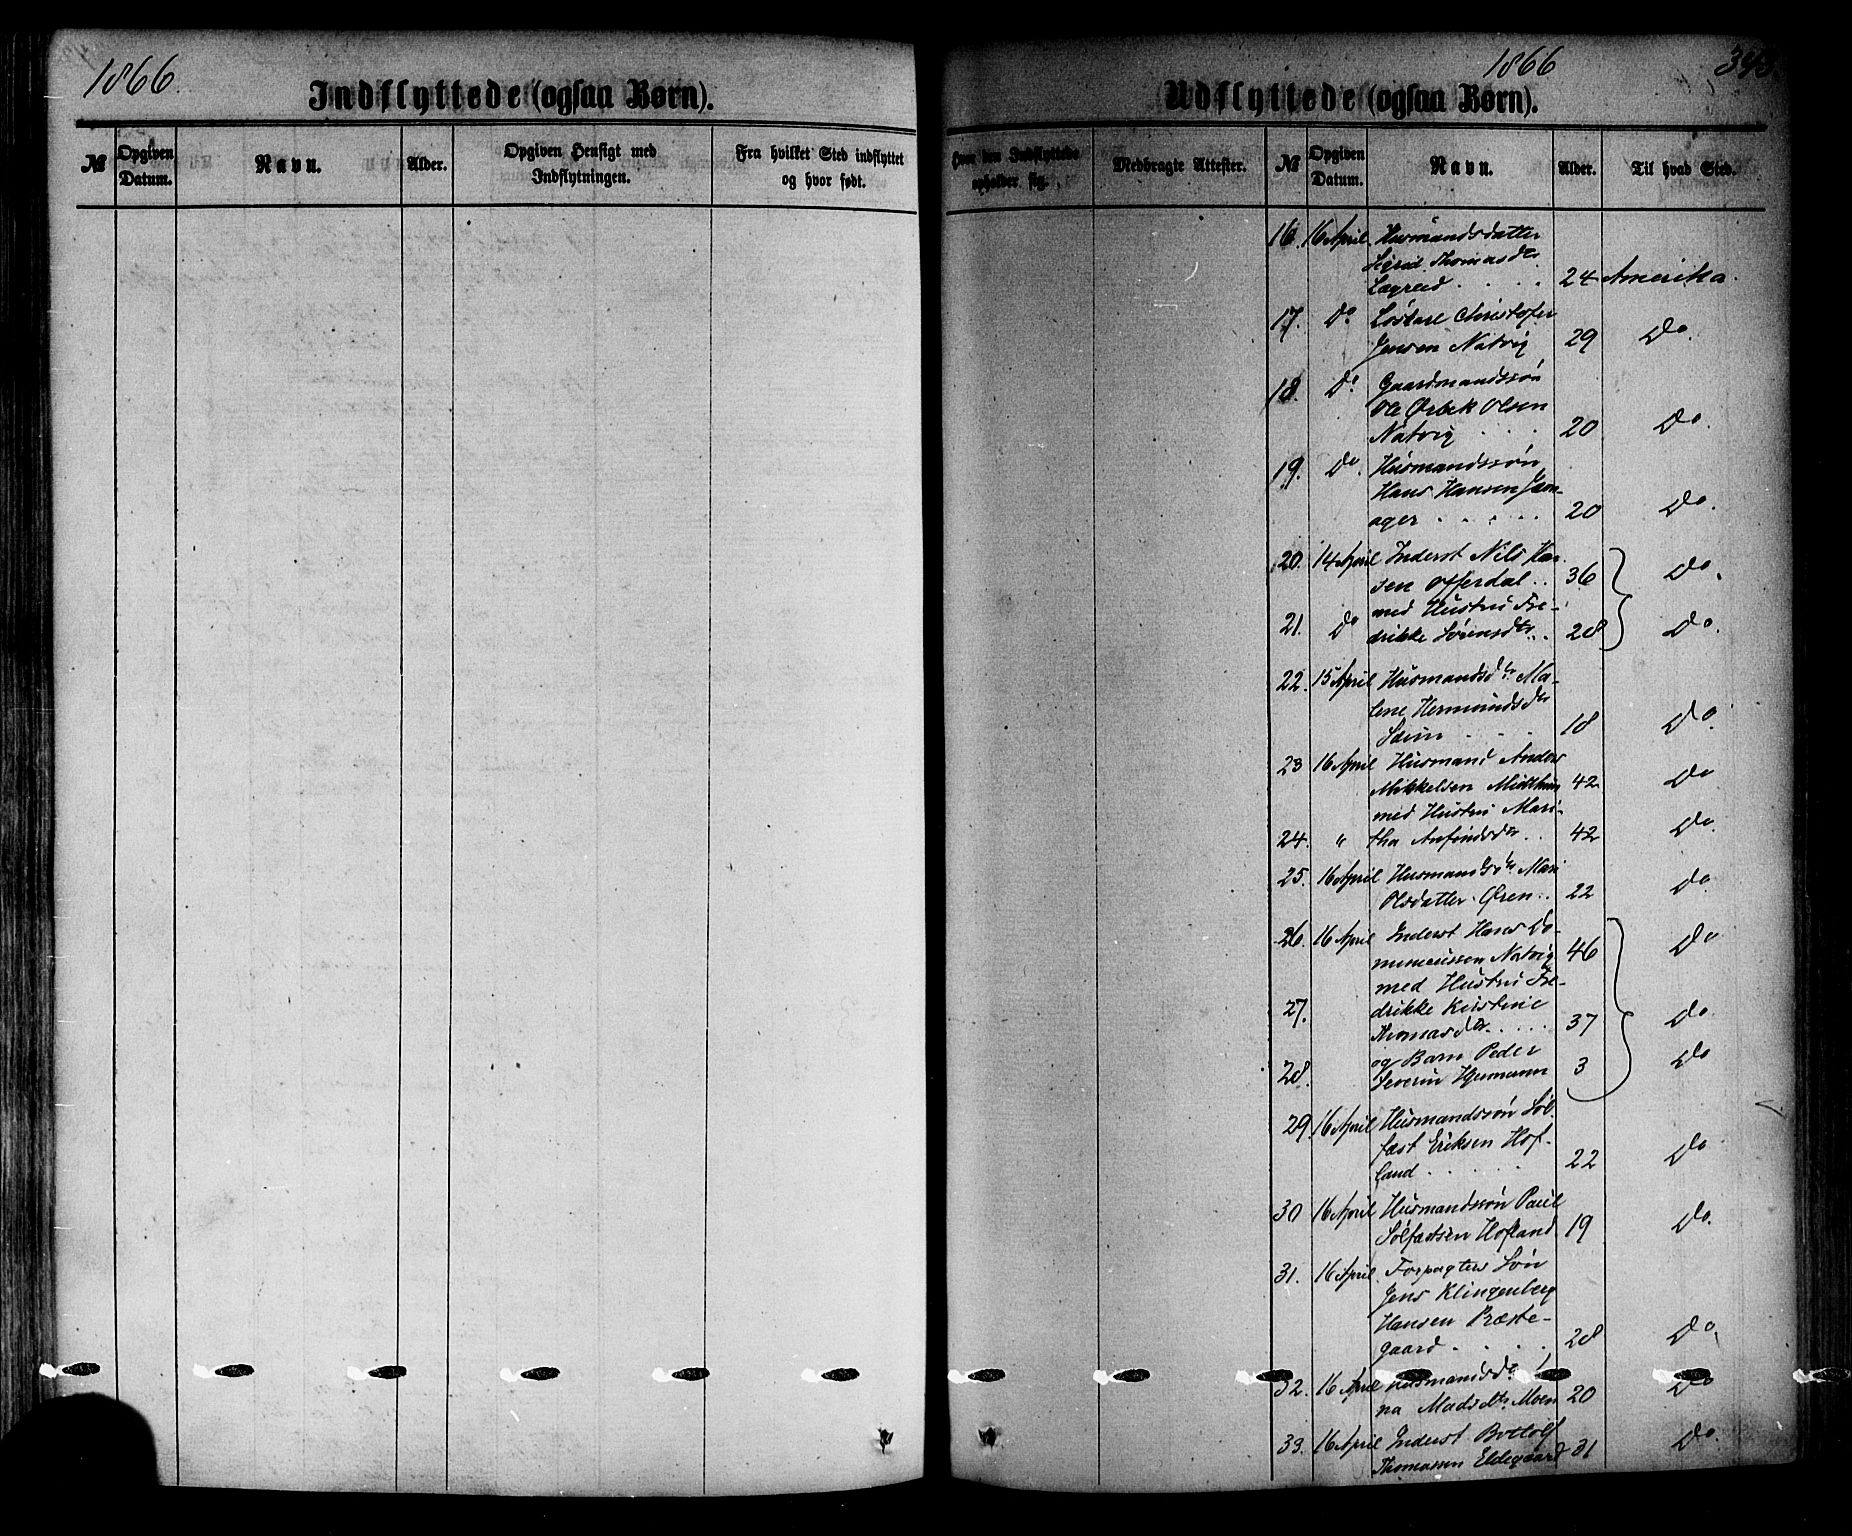 1866.
Indflyttede (ogsaa Børn).
№ Opgiven Datum. Navn. Alder. Opgiven Hensigt med Indflytningen. Fra hvilket Sted indflyttet og hvor født.
1866 343.
Udflyttede (ogsaa Børn).
Hvor den Indflyttede opholder sig. Medbragte Attester. № Opgiven Datum. Navn. Alder. Til hvad Sted.
16. 16 April. Husmandsdatter
Sigrid Thomasdtr
Lægreid . . . . 24 Amerika.
17. Do Løskarl Christofer
Jensen Natvig 29 Do.
18. Do Gaardmandssøn
Ole Ørbek Olsen
Natvig . . . 20 Do.
19. Do. Husmandssøn
Hans Hansen Jæn-
ager . . . . . 20 Do.
20. 14 April Inderst Nils Han
sen Offerdal . . 36 Do.
med Hustru Fre-
21. Do drikke Sørensdtr . . 28 Do.
22. 15 April Husmandsdtr Ma-
lene Hermundsdtr
Seim . . . 18 Do.
23 16 April Husmand Anders
Mikkelsen Midthun 42 Do
med Hustru Mari-
24. " tha Anfindsdtr . . 42 Do.
25. 16 April Husmandsdtr Mari
Olsdatter Øren . . 22 Do.
26. 16 April Inderst Hans Do-
minicussen Natvig 46 Do
med Hustru Fre-
27. drikke Kristine
Thomasdtr . . . . . 37 Do.
og Barn Peder
28. Severin Hjermann 3 Do
29. 16 April Husmandssøn Søl-
fest Eriksen Hof-
land . . . . . 22 Do
30 16 April Husmandssøn Paul
Sølfestsen Hofland 19 Do.
31. 16 April. Forpagters Søn
Jens Klingenberg
Hansen Præste-
gaard . . . . 28 Do.
32. 16 April Husmandsdtr
na Madsdtr Moen 20 Do
33. 16 April Inderst Bottolf
Thomassen Eldegaard 31 Do.